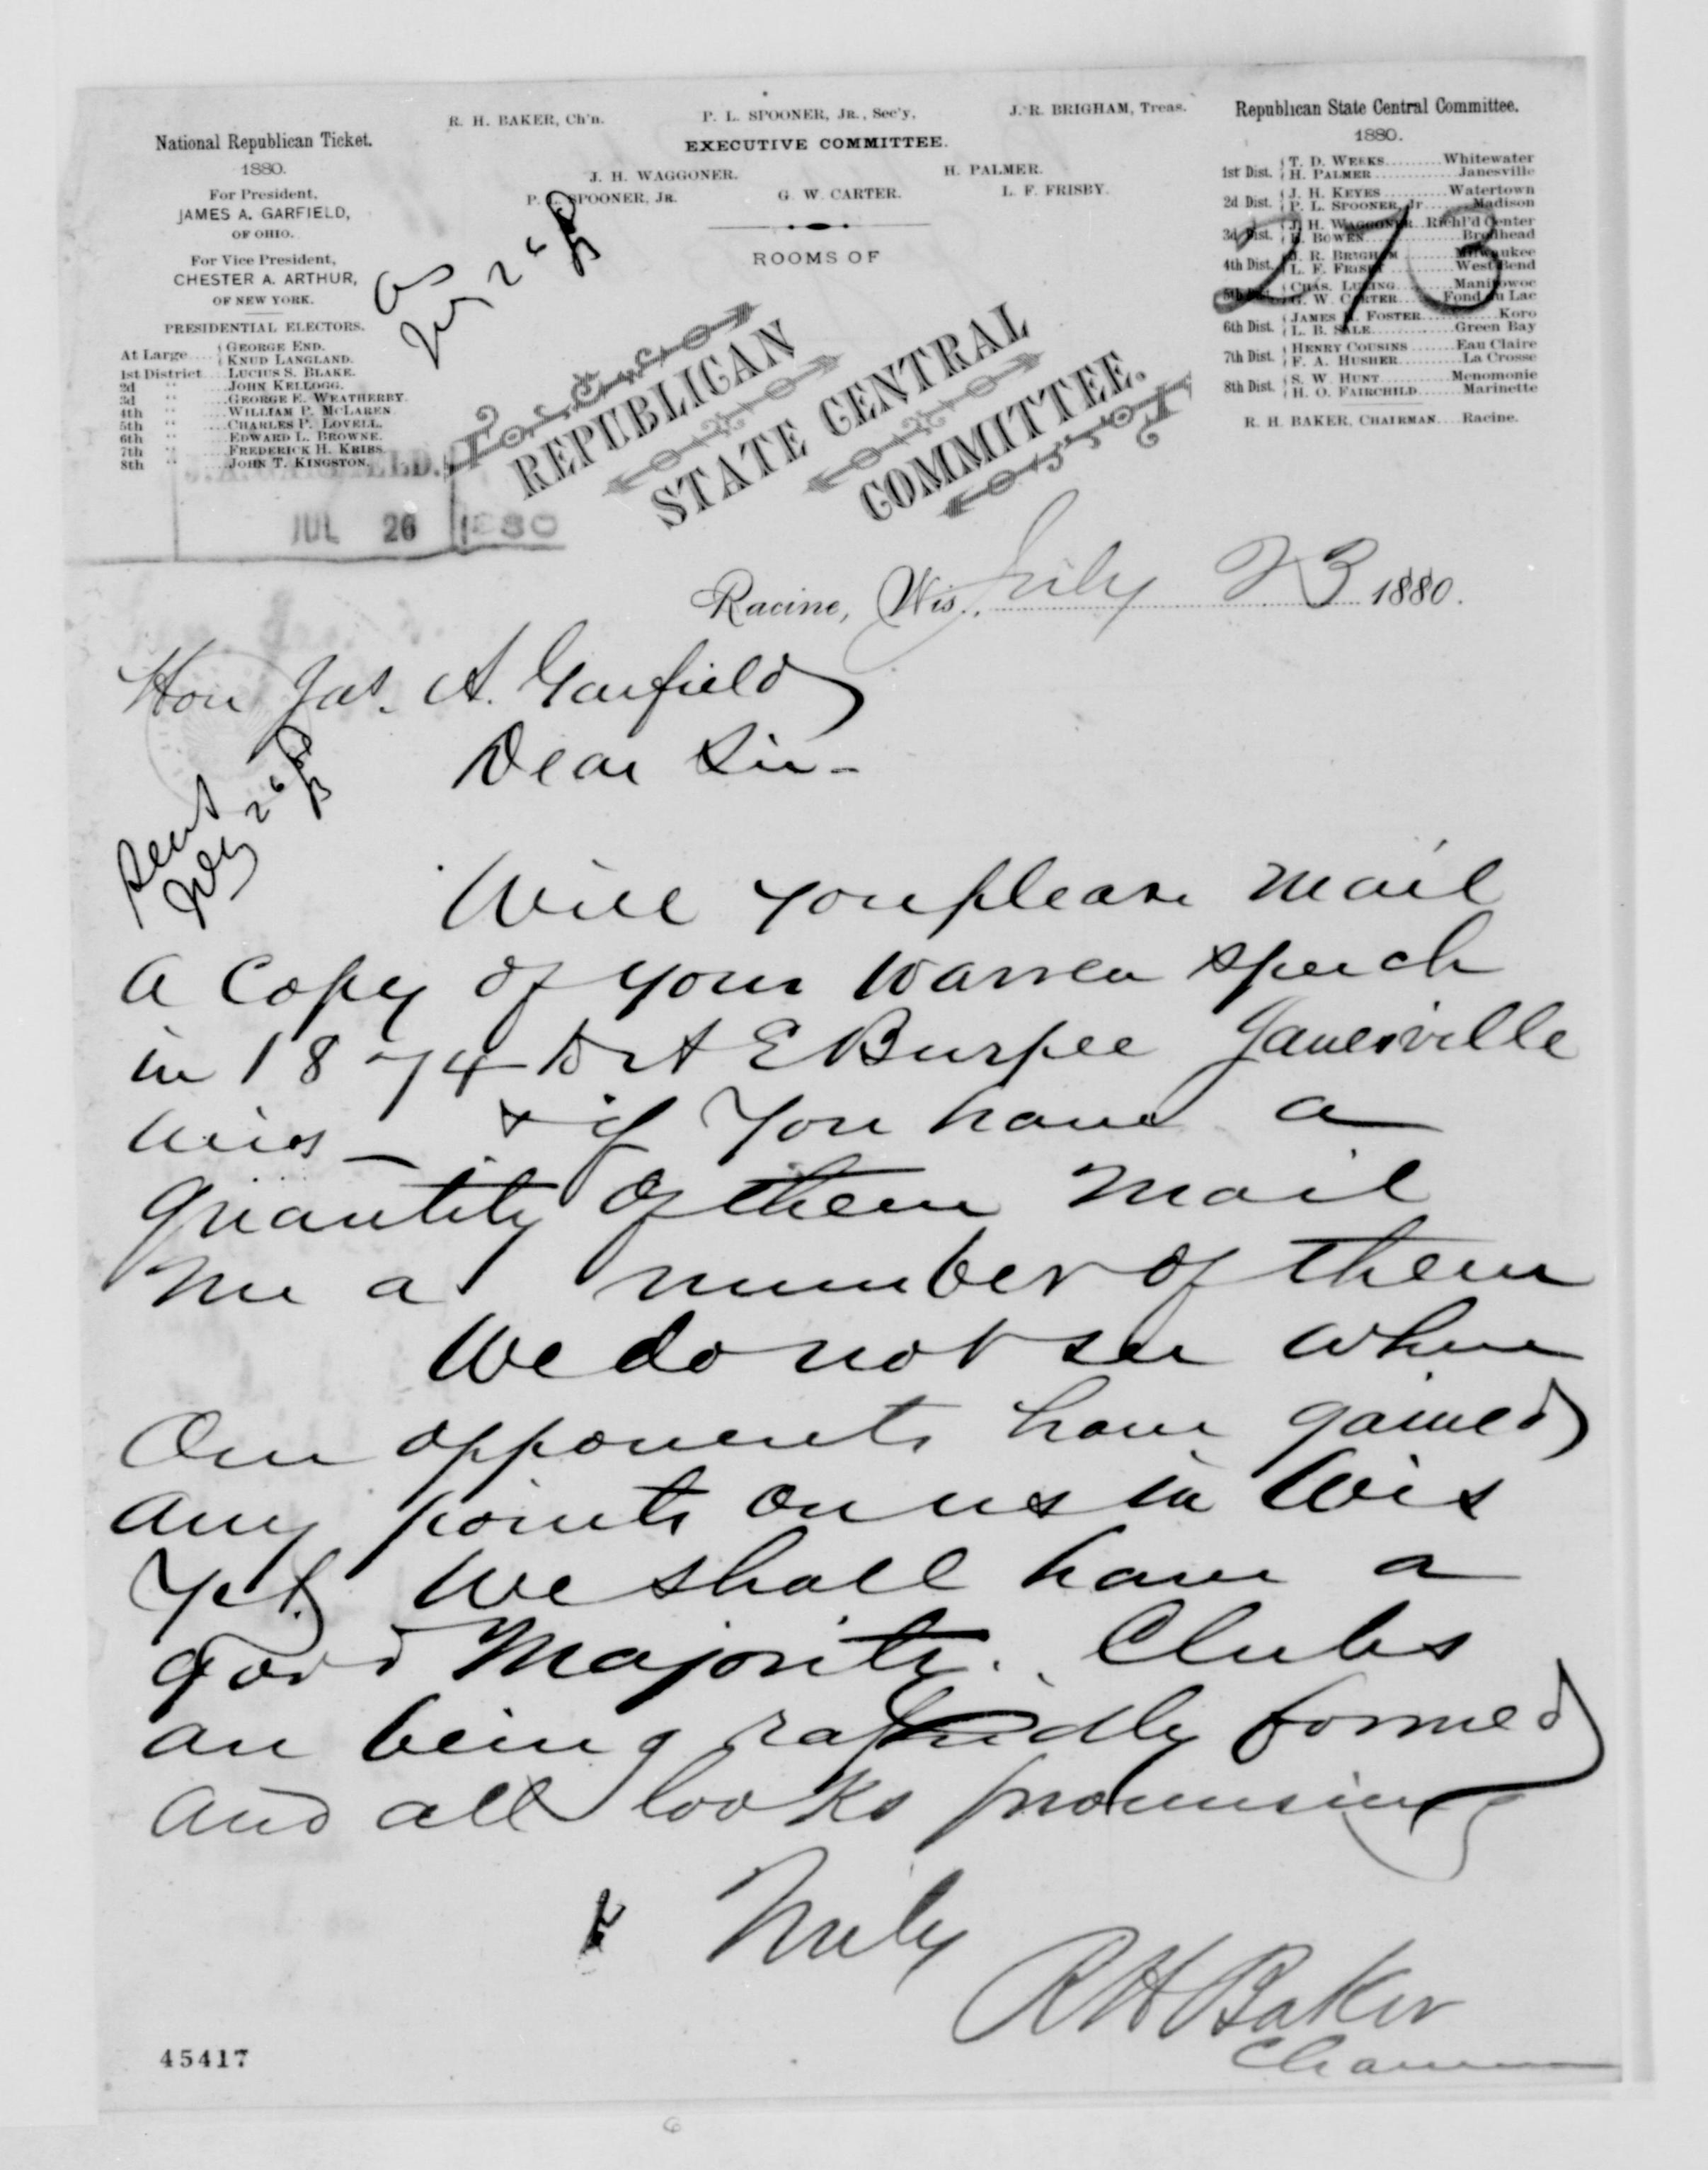 R. H. BAKER, Ch'n.
P. L. SPOONER, JR., Sec'y,
J. R. BRIGHAM, Treas.
EXECUTIVE COMMITTEE.
J. H. WAGGONER.
H. PALMER.
P. L. SPOONER, JR.
G. W. CARTER.
L. F. FRISBY.
ROOMS OF
REPUBLICAN
STATE CENTRAL
COMMITTEE.
National Republican Ticket.
1880.
For President,
JAMES A. GARFIELD,
OF OHIO.
For Vice President,
CHESTER A. ARTHUR,
OF NEW YORK.
PRESIDENTIAL ELECTORS.
At Large.... GEORGE END.
KNUD LANGLAND.
1st District.... LUCIUS S. BLAKE.
2d " .... JOHN KELLOGG.
3d " .... GEORGE E. WEATHERBY.
4th " .... WILLIAM P. MCLAREN
5th " .... CHARLES P. LOVELL.
6th " .... EDWARD L. BROWNE.
7th " .... FREDERICK H. KRIBS.
8th " .... JOHN T. KINGSTON.
Republican State Central Committee.
1880.
1st Dist. T. D. WEEKS........Whitewater
H. PALMER............Janesville
2d Dist. J. H. KEYES........Watertown
P. L. SPOONER, Jr......Madison
3d Dist. J. H. WAGGONER..Richl'd Center
H. BOWEN............Brodhead
4th Dist. J. R. BRIGHAM......Milwaukee
L. F. FRISBY........West Bend
5th Dist. CHAS. LULING......Manitowoc
G. W. CARTER....Fond du Lac
6th Dist. JAMES H. FOSTER..........Koro
L. B. SALE..........Green Bay
7th Dist. HENRY COUSINS......Eau Claire
F. A. HUSHER........La Crosse
8th Dist. S. W. HUNT........Menomonie
H. O. FAIRCHILD......Marinette
R. H. BAKER, CHAIRMAN....Racine.
213
July 26
JUL 26 1880
Racine, Wis., July 23 1880.
Hon Jas. A. Garfield
Dear Sir-
Sent
July 26
Will you please mail
a copy of your Warren speech
in 1874 to A E Burpee Janesville
Wis - & if you have a
quantity of them mail
me a number of them
We do not see where
Our opponents have gained
any points on us in Wis
yet. We shall have a
good majority. Clubs
are being rapidly formed
and all looks promising
Truly
R H Baker
Chairman
45417